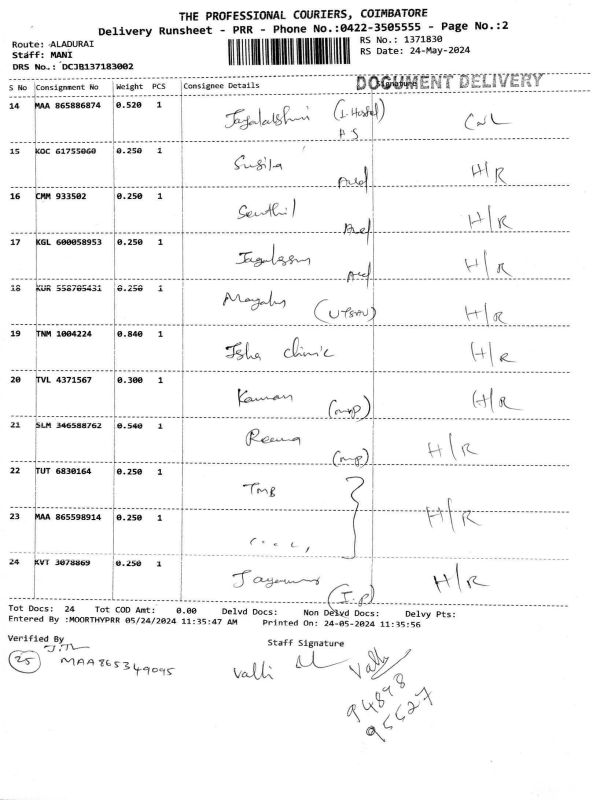 THE PROFESSIONAL COURIERS, COIMBATORE
Delivery Runsheet - PRR - Phone No.:0422-3505555 - Page No.:2
Route: ALADURAI
RS No.: 1371830
Staff: MANI
RS Date: 24-May-2024
DRS No.: DCJB137183002
DOCUMENT DELIVERY
S No Consignment No Weight PCS Consignee Details Signature
14 MAA 865886874 0.520 1 (I. Hostel)
15 KOC 61755060 0.250 1 Susila H/R
16 CMM 933502 0.250 1 Senthil H/R
17 KGL 600058953 0.250 1 H/R
18 KUR 558705431 0.250 1 H/R
19 TNM 1004224 0.840 1 Isha clinic H/R
20 TVL 4371567 0.300 1 Kannan H/R
21 SLM 346588762 0.540 1 Reena H/R
22 TUT 6830164 0.250 1 TMB
23 MAA 865598914 0.250 1 H/R
24 KVT 3078869 0.250 1 H/R
(I.P)
Tot Docs: 24 Tot COD Amt: 0.00 Delvd Docs: Non Delvd Docs: Delvy Pts:
Entered By :MOORTHYPRR 05/24/2024 11:35:47 AM Printed On: 24-05-2024 11:35:56
Verified By Staff Signature
25 MAA865349095
Valli Valli
94898
95627